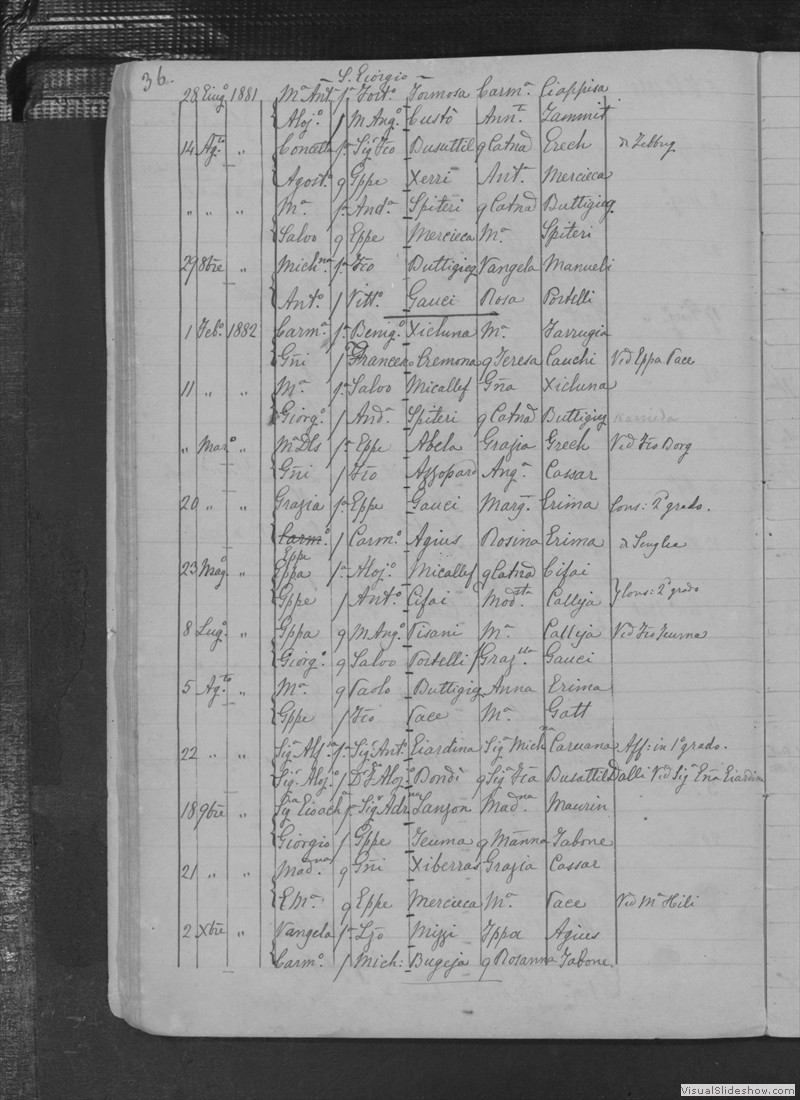 36.
S. Giorgio
28 Giug.o 1881 M.a Ant f.a Fort.o Formosa Carm.a Ciappisa
Aloj.o f M Ang.o Custò Ann.a Zammit
14 Ag.to " Concetta f.a Sig.r Fco Busuttil q Catna Grech di Zebbug
Agost.o q Gppe Xerri Ant. Mercieca
" " " M.a f.a And.a Spiteri q Catna Buttigieg
Salvo q Gppe Mercieca M.a Spiteri
29 8bre " Mich.na f.a Fco Buttigieg Vangela Manueli
Ant.o f Vitt.o Gauci Rosa Portelli
1 Feb.o 1882 Carm.a f.a Benig.o Xicluna M.a Farrugia
Gñi f Francesco Cremona q Teresa Cauchi Vid Eppa Pace
11 " " M.a f.a Salvo Micallef Gña Xicluna
Giorg.o f And.a Spiteri q Catna Buttigieg
" Mar.o " M.a Dls f.a Gppe Abela Grazia Grech Vid Fco Borg
Gñi f Fco Azzopard Ang.a Cassar
20 " " Grazia f.a Gppe Gauci Marg.a Erima Cons: 2o grado.
Carm.o Gppe f Carm.o Agius Rosina Erima di Senglea
23 Mag.o " Gppa f.a Aloj.o Micallef q Catna Cifai
Gppe f Ant.o Cifai Mod.sta Calleja } Cons: 2o grado
8 Lug.o " Gppa q M Ang.o Pisani M.a Calleja Vid Fco Teuma
Giorg.o q Salvo Portelli f Graz.lla Gauci
5 Ag.to " M.a q Paolo Buttigieg Anna Erima
Gppe f Fco Pace M.a Gatt
22 " " Sig.a Alf.a f.a Sig.r Ant.o Giardina Sig.a Mich.na Caruana Aff: in 1o grado.
Sig.r Aloj.o f Dr. Aloj.o Bondì q Sig.a Fca Busuttil Dalli Vid Sig.a Ena Giardina
18 9bre " Sig.a Gioach.a f.a Sig.r Adr.no Lanzon Mad.na Maurin
Giorgio f Gppe Teuma q Mañna Tabone
21 " " Mad.na q Gñi Xiberras Grazia Cassar
Em. q Gppe Mercieca M.a Pace Vid M.a Hili
2 Xbre " Vangela f.a Lzo Mizzi Gppa Agius
Carm.o f Mich: Bugeja q Rosanna Tabone
VisualSlideshow.com